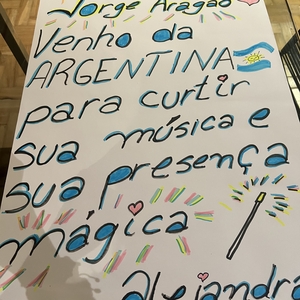 Jorge Aragão
Venho da
ARGENTINA
para curtir
sua música e
sua presença
mágica
alejandra